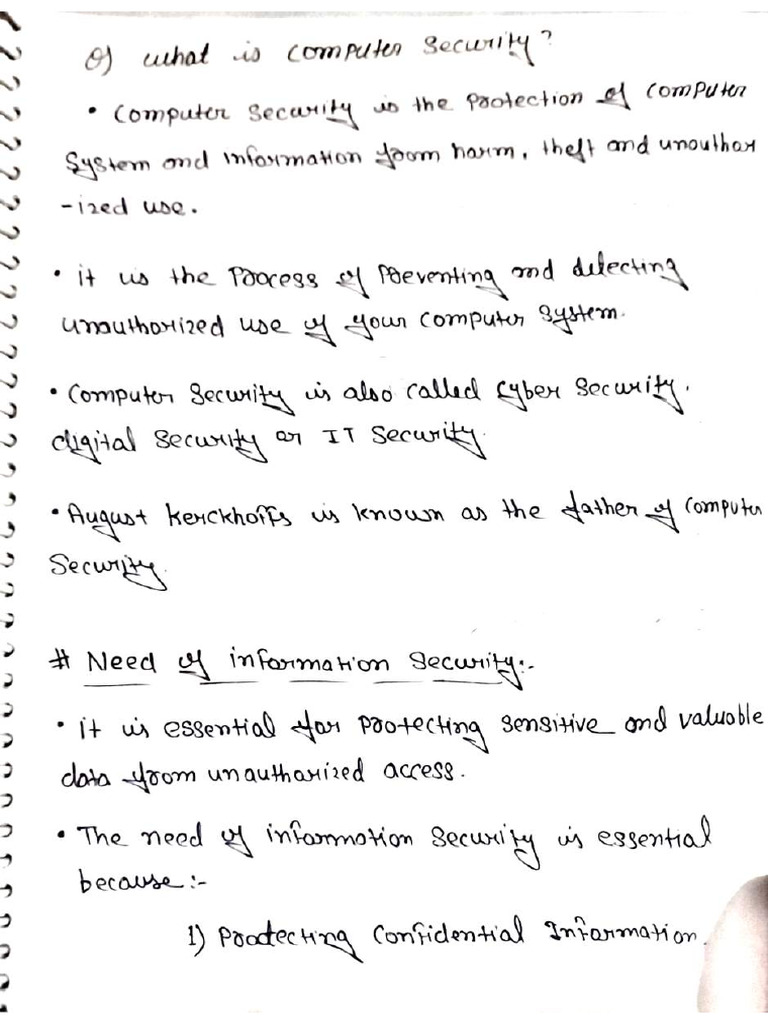 Q) what is computer security?
• Computer security is the protection of computer
System and information from harm, theft and unauthor
-ized use.
• it is the process of preventing and detecting
unauthorized use of your computer system.
• Computer security is also called cyber security.
digital security or IT security.
• August Kerckhoffs is known as the father of computer
Security.
# Need of information security:-
• it is essential for protecting sensitive and valuable
data from unauthorized access.
• The need of information security is essential
because:-
1) Protecting Confidential Information.